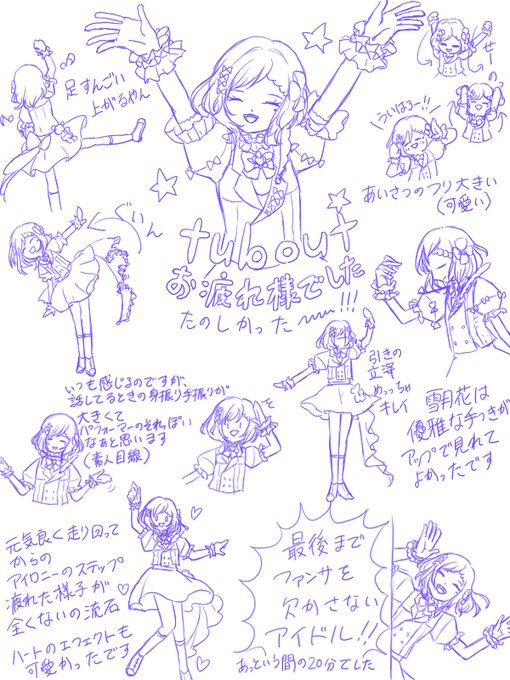 足すんごい
上がるやん
せーの
ういはろー!!
あいさつのフリ大きい
(可愛い)
ぐいーん
tubout
お疲れ様でした
たのしかったー!!!
引きの
立姿
めっちゃ
キレイ
雪月花は
優雅な手つきが
アップで見れて
よかったです
いつも感じるのですが、
話してるときの身振り手振りが
大きくて
パフォーマーのそれっぽい
なぁと思います
(素人目線)
元気良く走り回って
からの
アイロニーのステップ
疲れた様子が
全くないの流石
ハートのエフェクトも
可愛かったです
最後まで
ファンサを
欠かさない
アイドル!!
あっという間の20分でした